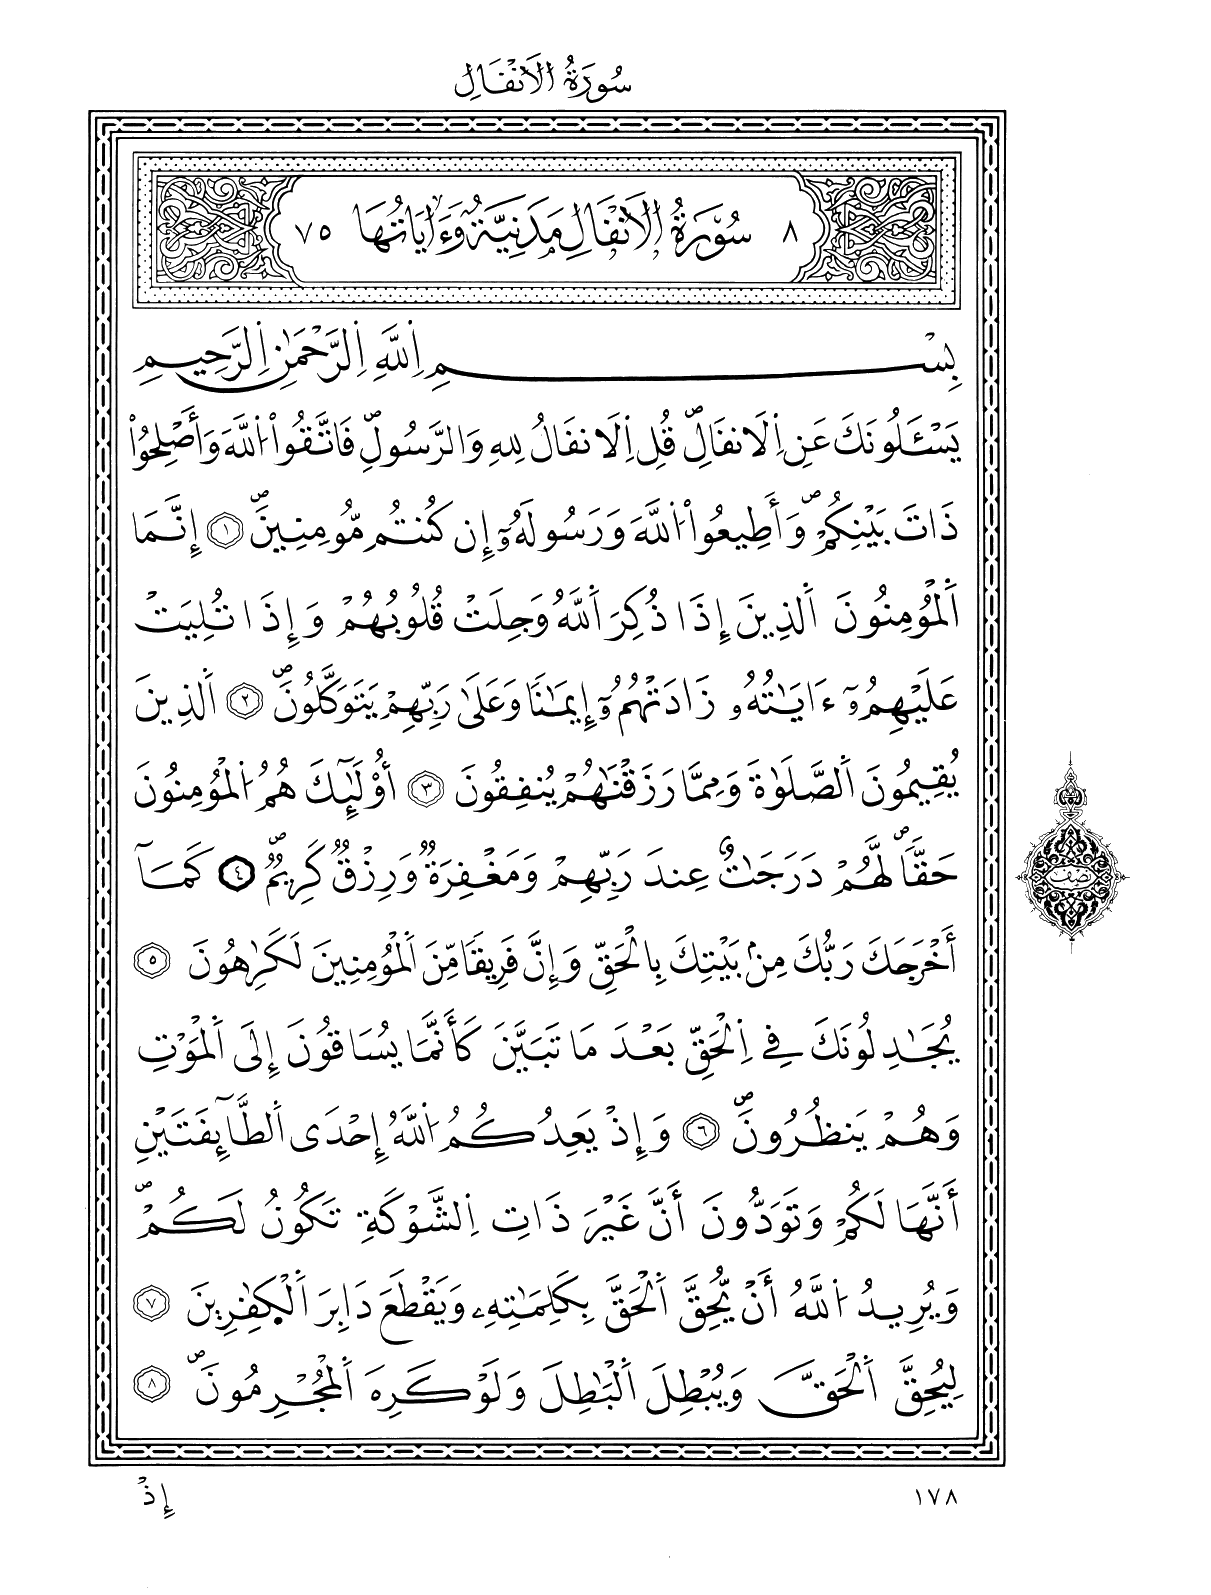 سُورَةُ الَانْفَالِ
٨ سُورَةُ الَانْفَالِ مَدَنِيَّةٌ وَءَايَاتُهَا ٧٥
بِسْمِ اِللَّهِ اِلرَّحْمَٰنِ اِلرَّحِيمِ
يَسْـَٔلُونَكَ عَنِ اِلَانفَالِۖ قُلِ اِلَانفَالُ لِلهِ وَالرَّسُولِۖ فَاتَّقُواْ اُللَّهَ وَأَصْلِحُواْ
ذَاتَ بَيْنِكُمْۖ وَأَطِيعُواْ اُللَّهَ وَرَسُولَهُۥٓ إِن كُنتُم مُّومِنِينَۖ ١ إِنَّمَا
اَلْمُؤْمِنُونَ اَلذِينَ إِذَا ذُكِرَ اَللَّهُ وَجِلَتْ قُلُوبُهُمْ وَإِذَا تُلِيَتْ
عَلَيْهِمُۥٓ ءَايَٰتُهُۥ زَادَتْهُمُۥٓ إِيمَٰنًا وَعَلَىٰ رَبِّهِمْ يَتَوَكَّلُونَۖ ٢ اَلذِينَ
يُقِيمُونَ اَلصَّلَوٰةَ وَمِمَّا رَزَقْنَٰهُمْ يُنفِقُونَ ٣ أُوْلَٰٓئِكَ هُمُ اُلْمُؤْمِنُونَ
حَقّاًۖ لَّهُمْ دَرَجَٰتٌ عِندَ رَبِّهِمْ وَمَغْفِرَةٌ وَرِزْقٌ كَرِيمٌۖ ٤ كَمَآ
أَخْرَجَكَ رَبُّكَ مِنۢ بَيْتِكَ بِالْحَقِّ وَإِنَّ فَرِيقًا مِّنَ اَلْمُؤْمِنِينَ لَكَٰرِهُونَ ٥
يُجَٰدِلُونَكَ فِي اِلْحَقِّ بَعْدَ مَا تَبَيَّنَ كَأَنَّمَا يُسَاقُونَ إِلَى اَلْمَوْتِ
وَهُمْ يَنظُرُونَۖ ٦ وَإِذْ يَعِدُكُمُ اُللَّهُ إِحْدَى اَلطَّآئِفَتَيْنِ
أَنَّهَا لَكُمْ وَتَوَدُّونَ أَنَّ غَيْرَ ذَاتِ اِلشَّوْكَةِ تَكُونُ لَكُمْۖ
وَيُرِيدُ اُللَّهُ أَنْ يُّحِقَّ اَلْحَقَّ بِكَلِمَٰتِهِۦ وَيَقْطَعَ دَابِرَ اَلْكَٰفِرِينَ ٧
لِيُحِقَّ اَلْحَقَّ وَيُبْطِلَ اَلْبَٰطِلَ وَلَوْ كَرِهَ اَلْمُجْرِمُونَۖ ٨
نصف
١٧٨
إِذْ